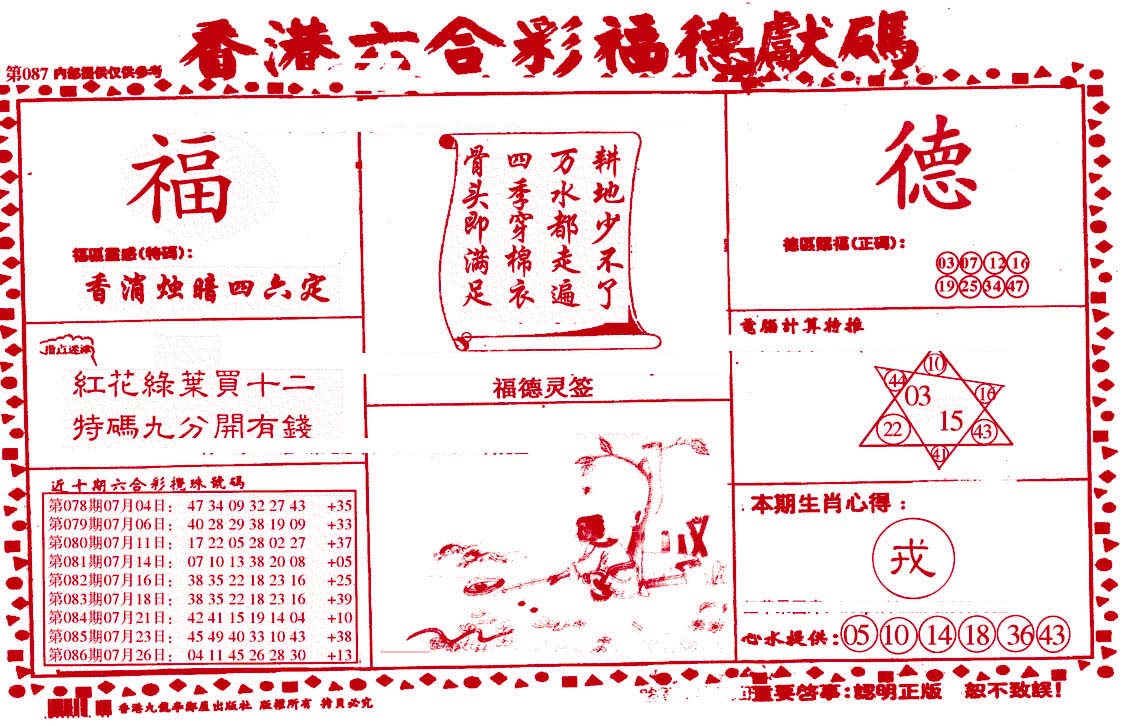 香港六合彩福德獻碼
第087 内部提供仅供参考
福
福區靈感(特碼):
香消烛暗四六定
指点迷津
紅花綠葉買十二
特碼九分開有錢
近十期六合彩攪珠號碼
第078期07月04日: 47 34 09 32 27 43 +35
第079期07月06日: 40 28 29 38 19 09 +33
第080期07月11日: 17 22 05 28 02 27 +37
第081期07月14日: 07 10 13 38 20 08 +05
第082期07月16日: 38 35 22 18 23 16 +25
第083期07月18日: 38 35 22 18 23 16 +39
第084期07月21日: 42 41 15 19 14 04 +10
第085期07月23日: 45 49 40 33 10 43 +38
第086期07月26日: 04 11 45 26 28 30 +13
耕地少不了
万水都走遍
四季穿棉衣
骨头即满足
福德灵签
德
德區賜福(正碼):
03 07 12 16
19 25 34 47
電腦計算特推
10
44
03
16
22
15
43
41
本期生肖心得:
戎
心水提供: 05 10 14 18 36 43
重要啓事:認明正版 恕不致誤!
香港九龍 出版社 版權所有 持員必究